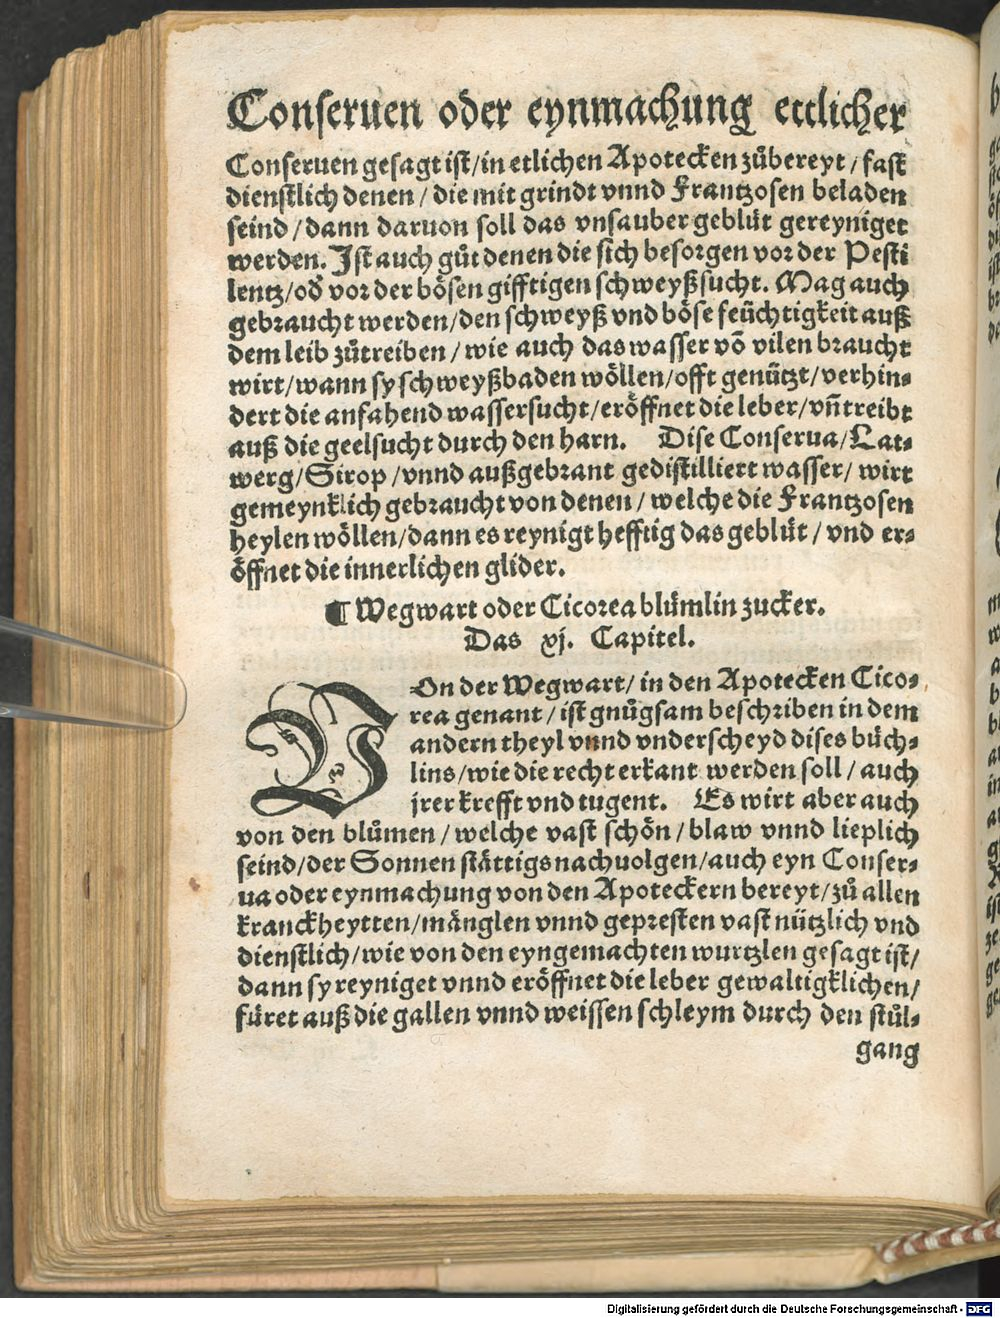 Conseruen oder eynmachung ettlicher
Conseruen gesagt ist/in etlichen Apotecken zůbereyt/fast
dienstlich denen/die mit grindt vnnd Frantzosen beladen
seind/dann daruon soll das vnsauber geblůt gereyniget
werden. Jst auch gůt denen die sich besorgen vor der Pesti
lentz/od̕ vor der bösen gifftigen schweyßsucht. Mag auch
gebraucht werden/den schweyß vnd böse feüchtigkeit auß
dem leib zůtreiben/wie auch das wasser võ vilen braucht
wirt/wann sy schweyßbaden wöllen/offt genützt/verhin⸗
dert die anfahend wassersucht/eröffnet die leber/vñ treibt
auß die geelsucht durch den harn. Dise Conserua/Lat⸗
werg/Sirop/vnnd außgebrant gedistilliert wasser/wirt
gemeynklich gebraucht von denen/welche die Frantzosen
heylen wöllen/dann es reynigt hefftig das geblůt/vnd er⸗
öffnet die innerlichen glider.
¶ Wegwart oder Cicorea blůmlin zucker.
Das xj. Capitel.
VOn der Wegwart/in den Apotecken Cico⸗
rea genant/ist gnůgsam beschriben in dem
andern theyl vnnd vnderscheyd dises bůch⸗
lins/wie die recht erkant werden soll/auch
jrer krefft vnd tugent. Es wirt aber auch
von den blůmen/welche vast schön/blaw vnnd lieplich
seind/der Sonnen stättigs nachuolgen/auch eyn Conser⸗
ua oder eynmachung von den Apoteckern bereyt/zů allen
kranckheytten/mänglen vnnd gepresten vast nützlich vnd
dienstlich/wie von den eyngemachten wurtzlen gesagt ist/
dann sy reyniget vnnd eröffnet die leber gewaltigklichen/
füret auß die gallen vnnd weissen schleym durch den stůl⸗
gang
Digitalisierung gefördert durch die Deutsche Forschungsgemeinschaft - DFG